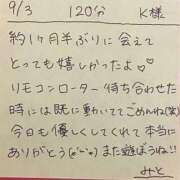 9/3 120分 K様
約1ヶ月半ぶりに会えて
とっても嬉しかったよ♡
リモコンローター待ち合わせた
時には既に動いててごめんね(笑)
今日も優しくしてくれて本当に
ありがとう(๑'ᴗ'๑)また遊ぼうね!!
みと